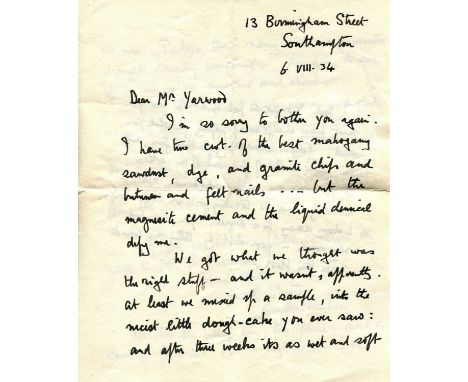 13 Birmingham Street
Southampton
6 VIII. 34
Dear Mr Yarwood
I'm so sorry to bother you again.
I have two cwt. of the best mahogany
sawdust, dye, and granite chips and
bitumen and felt nails .... but the
magnesite cement and the liquid
defy me.
We got what we thought was
the right stuff — and it wasn't, apparently.
At least we mixed up a sample, into the
nicest little dough-cake you ever saw:
and after three weeks its as wet and soft